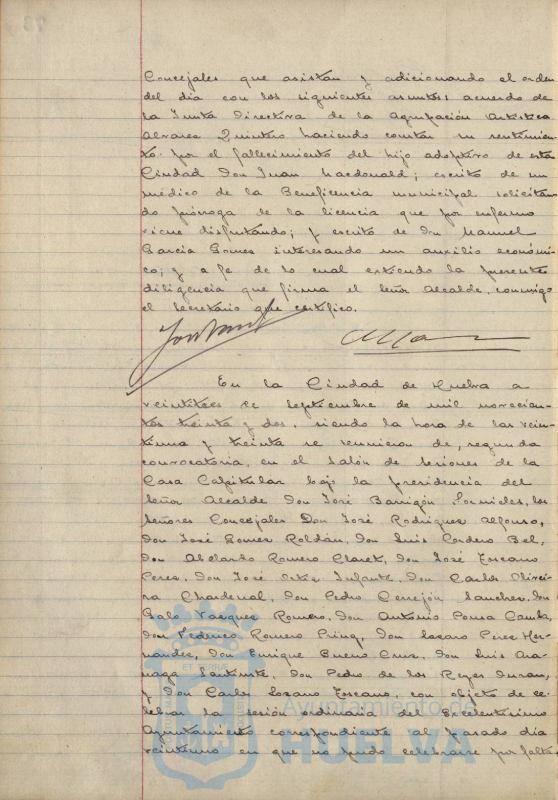 Concejales que asistan y adicionando el orden
del dia con los siguientes asuntos: acuerdo de
la Junta Directiva de la Agrupación Artistica
Alvarez Quintero haciendo constar su sentimien-
to por el fallecimiento del hijo adoptivo de esta
Ciudad Don Juan Macdonald; escrito de un
médico de la Beneficencia municipal solicitan-
do prórroga de la licencia que por enfermo
viene disfrutando; y escrito de Don Manuel
Garcia Gomez interesando un auxilio económi-
co; y a fe de lo cual extiendo la presente
diligencia que firma el Señor Alcalde, conmigo
el Secretario que certifico.
En la Ciudad de Huelva a
veintitres de Septiembre de mil novecien-
tos treinta y dos, siendo la hora de las vein-
tiuna y treinta se reunieron de segunda
convocatoria, en el Salón de Sesiones de la
Casa Capitular bajo la presidencia del
Señor Alcalde Don José Barrigón Fornieles, los
Señores Concejales Don José Rodriguez Alfonso,
Don José Gomez Roldán, Don Luis Cordero Bel,
Don Abelardo Romero Claret, Don José Toscano
Perez, Don José Ortiz Infante, Don Carlos Olivei-
ra Chardenal, Don Pedro Cerejón Sanchez, Don
Galo Vazquez Romero, Don Antonio Ponsa Camba,
Don Federico Romero Prinq, Don Lazaro Perez Her-
nandez, Don Enrique Bueno Cruz, Don Luis Ara-
naga Santiuste, Don Pedro de los Reyes Duran,
y Don Carlos Lozano Toscano, con objeto de ce-
lebrar la sesión ordinaria del Excelentisimo
Ayuntamiento correspondiente al pasado dia
veintiuno en que no pudo celebrarse por falta
Ayuntamiento de
HUELVA